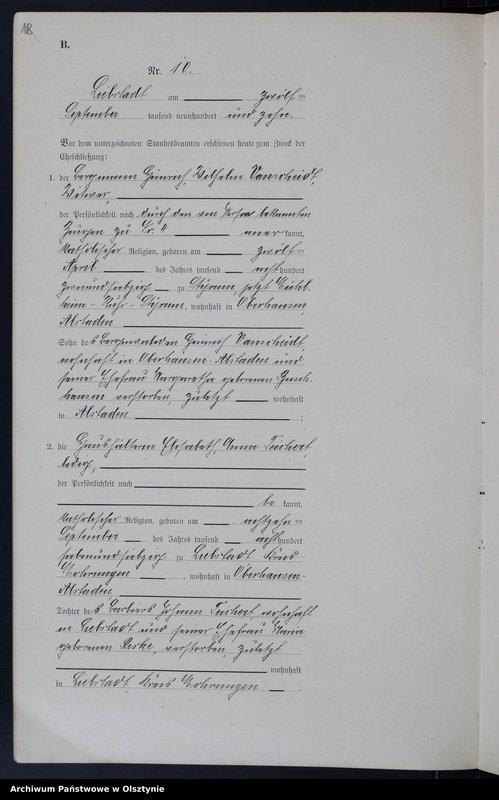 18
B.
Nr. 10.
Liebstadt am zwölften
September tausend neunhundert und zehn.
Vor dem unterzeichneten Standesbeamten erschienen heute zum Zweck der
Eheschließung:
1. der Bergmann Heinrich, Wilhelm Vanscheidt,
Witwer,
der Persönlichkeit nach durch den von Person bekannten
Zeugen zu Nr. 4 anerkannt,
katholischer Religion, geboren am zwölften
April des Jahres tausend achthundert
zweiundsiebzig zu Styrum, jetzt Mülheim-Ruhr-Styrum, wohnhaft in Oberhausen,
Alstaden
Sohn des Berginvaliden Heinrich Vanscheidt,
wohnhaft in Oberhausen-Alstaden und
seiner Ehefrau Margaretha geborenen
hausen verstorben, zuletzt wohnhaft
in Alstaden
2. die Haushälterin Elisabeth, Anna Teichert
ledig,
der Persönlichkeit nach
bekannt,
katholischer Religion, geboren am achtzehnten
September des Jahres tausend achthundert
siebenundsiebzig zu Liebstadt Kreis
Mohrungen, wohnhaft in Oberhausen-
Alstaden
Tochter des Barbiers Johann Teichert wohnhaft
in Liebstadt und seiner Ehefrau Maria
geborenen verstorben, zuletzt
wohnhaft
in Liebstadt, Kreis Mohrungen
Archiwum Państwowe w Olsztynie